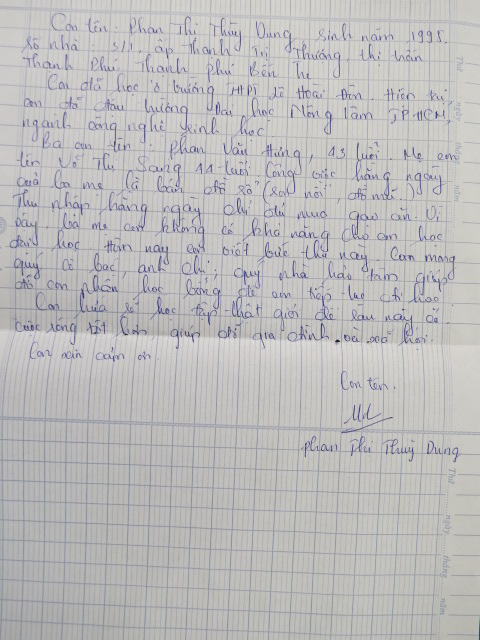 Con tên: Phan Thị Thùy Dung, sinh năm 1995.
số nhà: 511. ấp Thạnh Trị Thượng, thị trấn
Thạnh Phú, Thạnh phú Bến Tre
Con đã học ở trường THPT Lê Hoài Đôn. Hiện tại,
con đã đậu trường Đại học Nông Lâm TPHCM,
ngành công nghệ sinh học.
Ba con tên: Phan Văn Hưng, 43 tuổi. Mẹ con
tên Võ Thị Sang 44 tuổi. Công việc hằng ngày
của ba mẹ là bán đồ số
Thu nhập hằng ngày chỉ đủ mua gạo ăn. Vì
vậy, ba mẹ con không có khả năng cho con học
đại học. Hôm nay con viết bức thư này. Con mong
quý cô bác, anh chị, quý nhà hảo tâm giúp
đỡ con phần học bổng để em tiếp
Con hứa sẽ học tập thật giỏi để sau này có
cuộc sống tốt hơn, giúp đỡ gia đình và xã hội.
Con xin cảm ơn.
Con tên.
phan Thị Thuỳ Dung
Thứ
ngày
tháng
năm